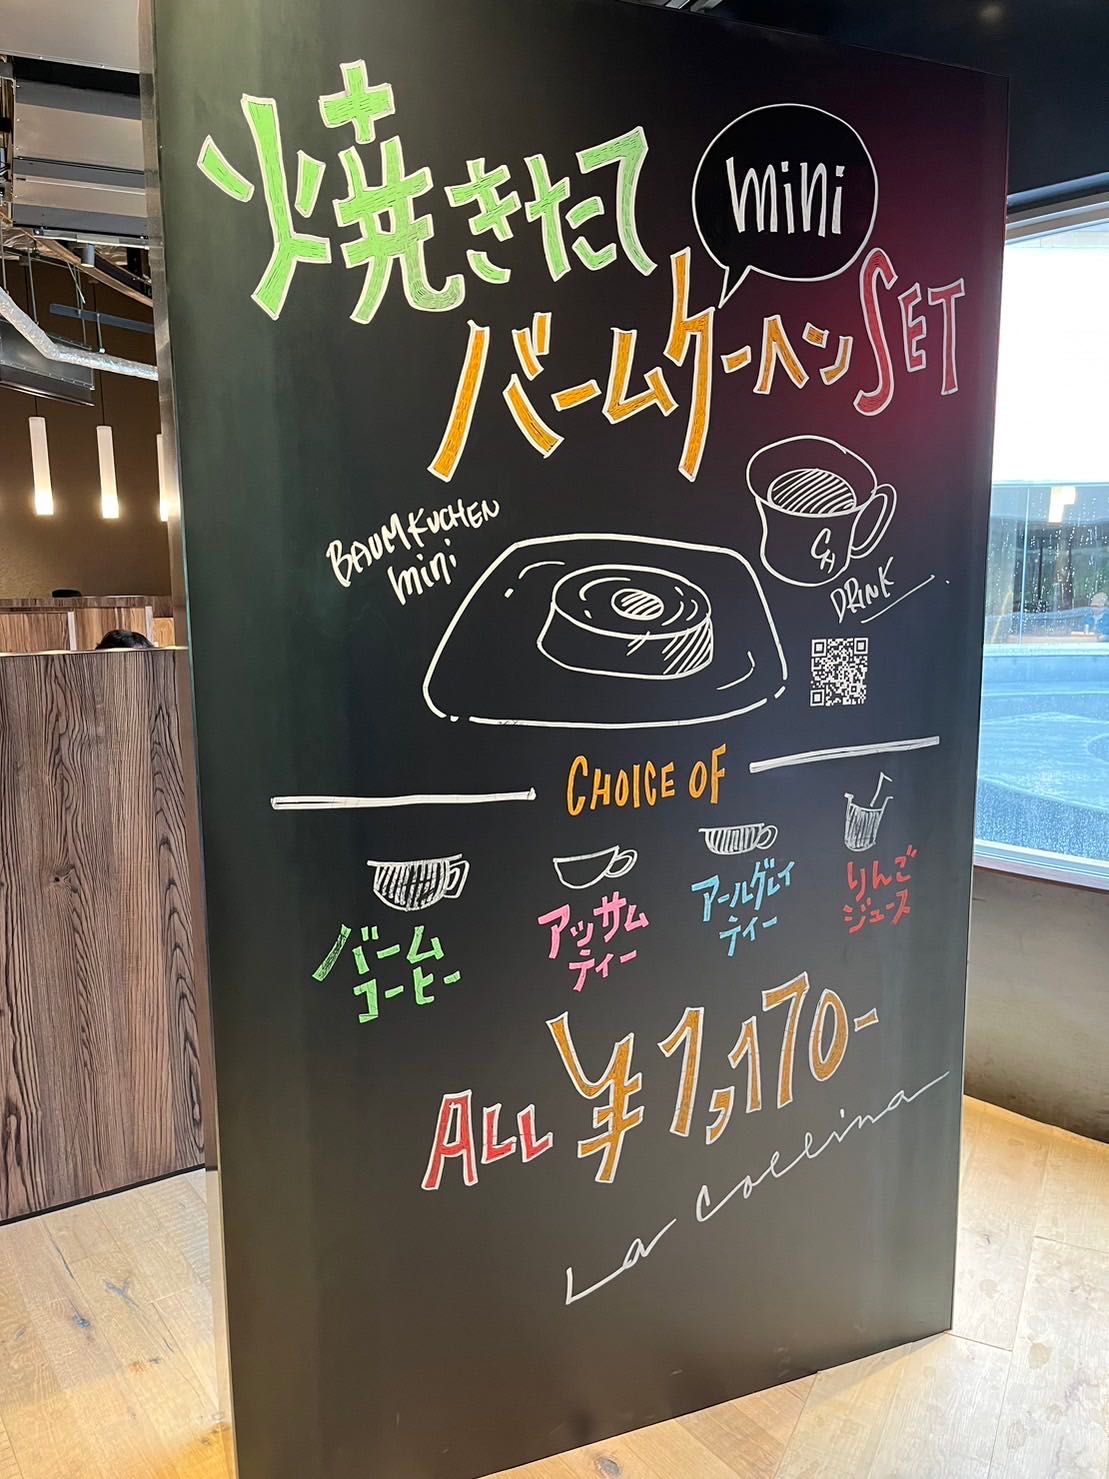 焼きたて
mini
バームクーヘン SET
BAUMKUCHEN
mini
CH
DRINK
CHOICE OF
バーム
コーヒー
アッサム
ティー
アールグレイ
ティー
りんご
ジュース
ALL ¥1,170-
La Collina